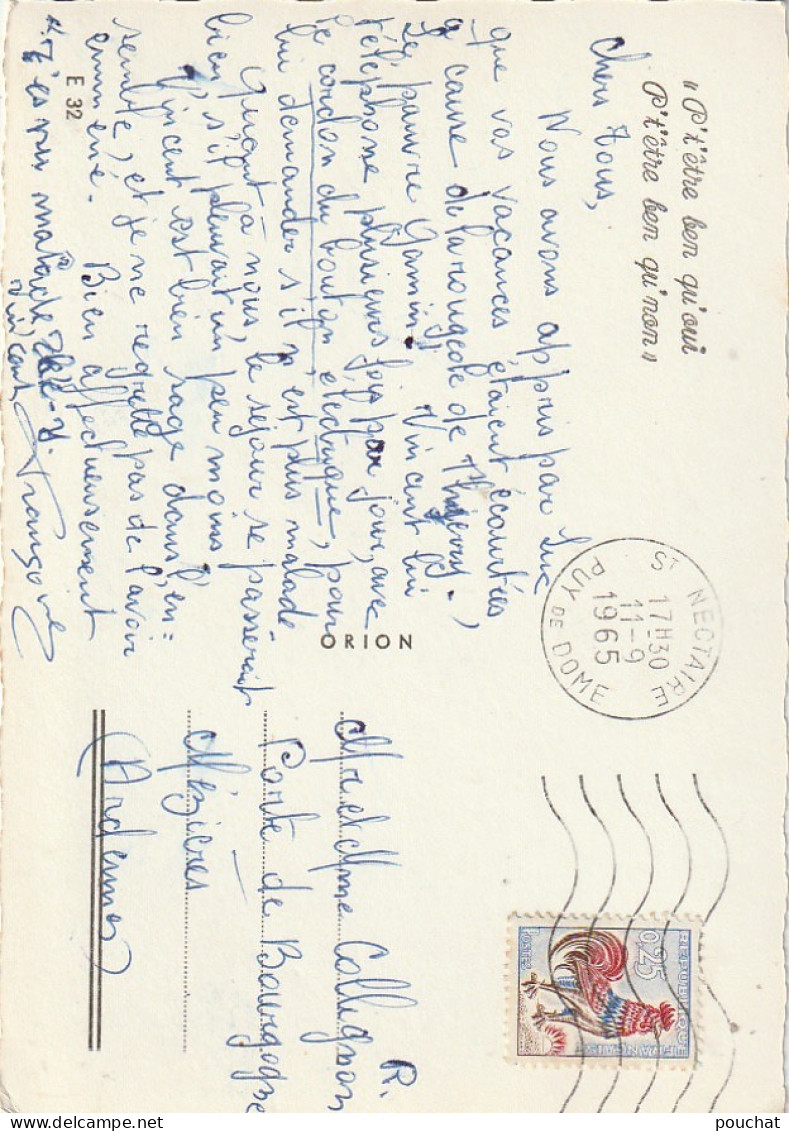 "P't'être ben qu'oui
P't'être ben qu'non"
Chers Tous,
Nous avons appris par Luc
que vos vacances étaient écourtées
à cause de la rougeole de Thierry.
Le pauvre Gamin! Vincent lui
téléphone plusieurs fois par jour, avec
le cordon du bouton électrique, pour
lui demander s'il n'est plus malade
Quant à nous, le séjour se passerait
bien, s'il pleuvait un peu moins
Vincent est bien sage dans l'en=
semble, et je ne regrette pas de l'avoir
emmené. Bien affectueusement
malade
Vincent
E 32
ORION
ST NECTAIRE
17H30
11-9
1965
PUY DE DOME
REPUBLIQUE FRANÇAISE
0,25
POSTES
Mr et Mme Collignon R.
Porte de Bourgogne
Mézières
(Ardennes)
pouchat